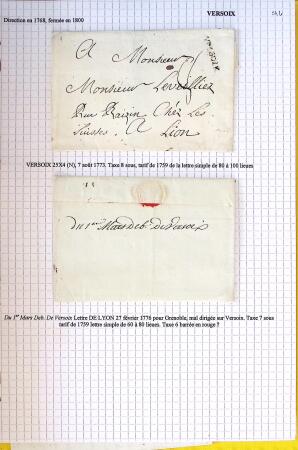 VERSOIX
Direction en 1768, fermée en 1800
A Monsieur
Monsieur Levellier
Rue Raizin Chéz Les
Suisses. A Lion
VERSOIX 25X4 (N), 7 août 1773. Taxe 8 sous, tarif de 1759 de la lettre simple de 80 à 100 lieues
du 1er Mars Deb. De Versoix
Du 1er Mars Deb. De Versoix Lettre DE LYON 27 février 1776 pour Grenoble, mal dirigée sur Versoix. Taxe 7 sous
tarif de 1759 lettre simple de 60 à 80 lieues. Taxe 6 barrée en rouge ?